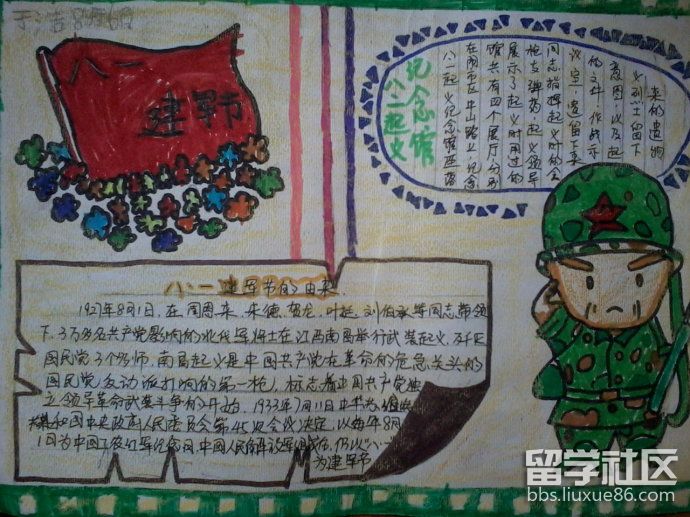 八一
建军节
纪念馆
八一起义
八一起义纪念馆座落
在南昌市区中山路上,纪念
馆共有四个展厅,分别
展示了起义时用过的
枪支弹药,起义领导
同志指挥起义时的会
议室,遗留下来
的文件,作战示
意图,以及起
义烈士留下
来的遗物
八·一建军节的由来
1927年8月1日,在周恩来、朱德、贺龙、叶挺、刘伯承等同志带领
下,3万多名共产党影响的北伐军将士在江西南昌举行武装起义,歼灭
国民党3个师,南昌起义是中国共产党在革命的危急关头的
国民党反动派打响的第一枪,标志着中国共产党独
立领导革命武装斗争的开始,1933年7月11日中华
和国中央政府人民委员会第45次会议决定,以每年8月
1日为中国工农红军纪念日,中国人民解放军组成后,仍以"八一"
为建军节
留学社区
bbs.liuxue86.com